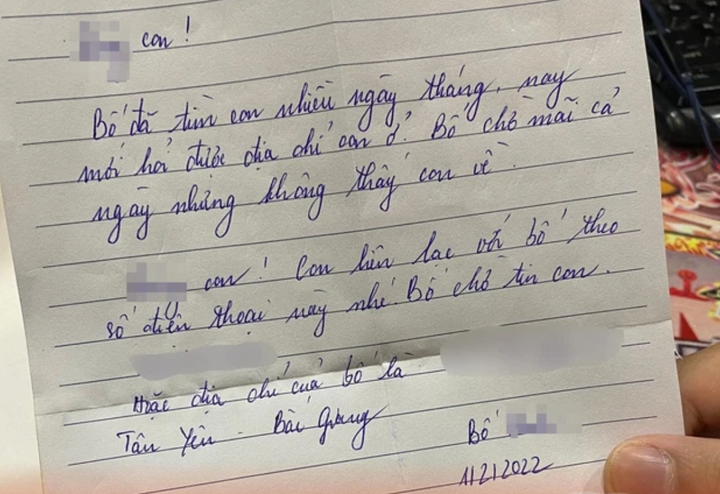 con !
Bố đã tìm con nhiều ngày tháng, nay
mới hỏi được địa chỉ con ở. Bố chờ mãi cả
ngày nhưng không thấy con về.
con ! Con liên lạc với bố theo
số điện thoại này nhé. Bố chờ tin con.
Hoặc địa chỉ của bố là
Tân Yên - Bắc Giang
Bố
11/2/2022